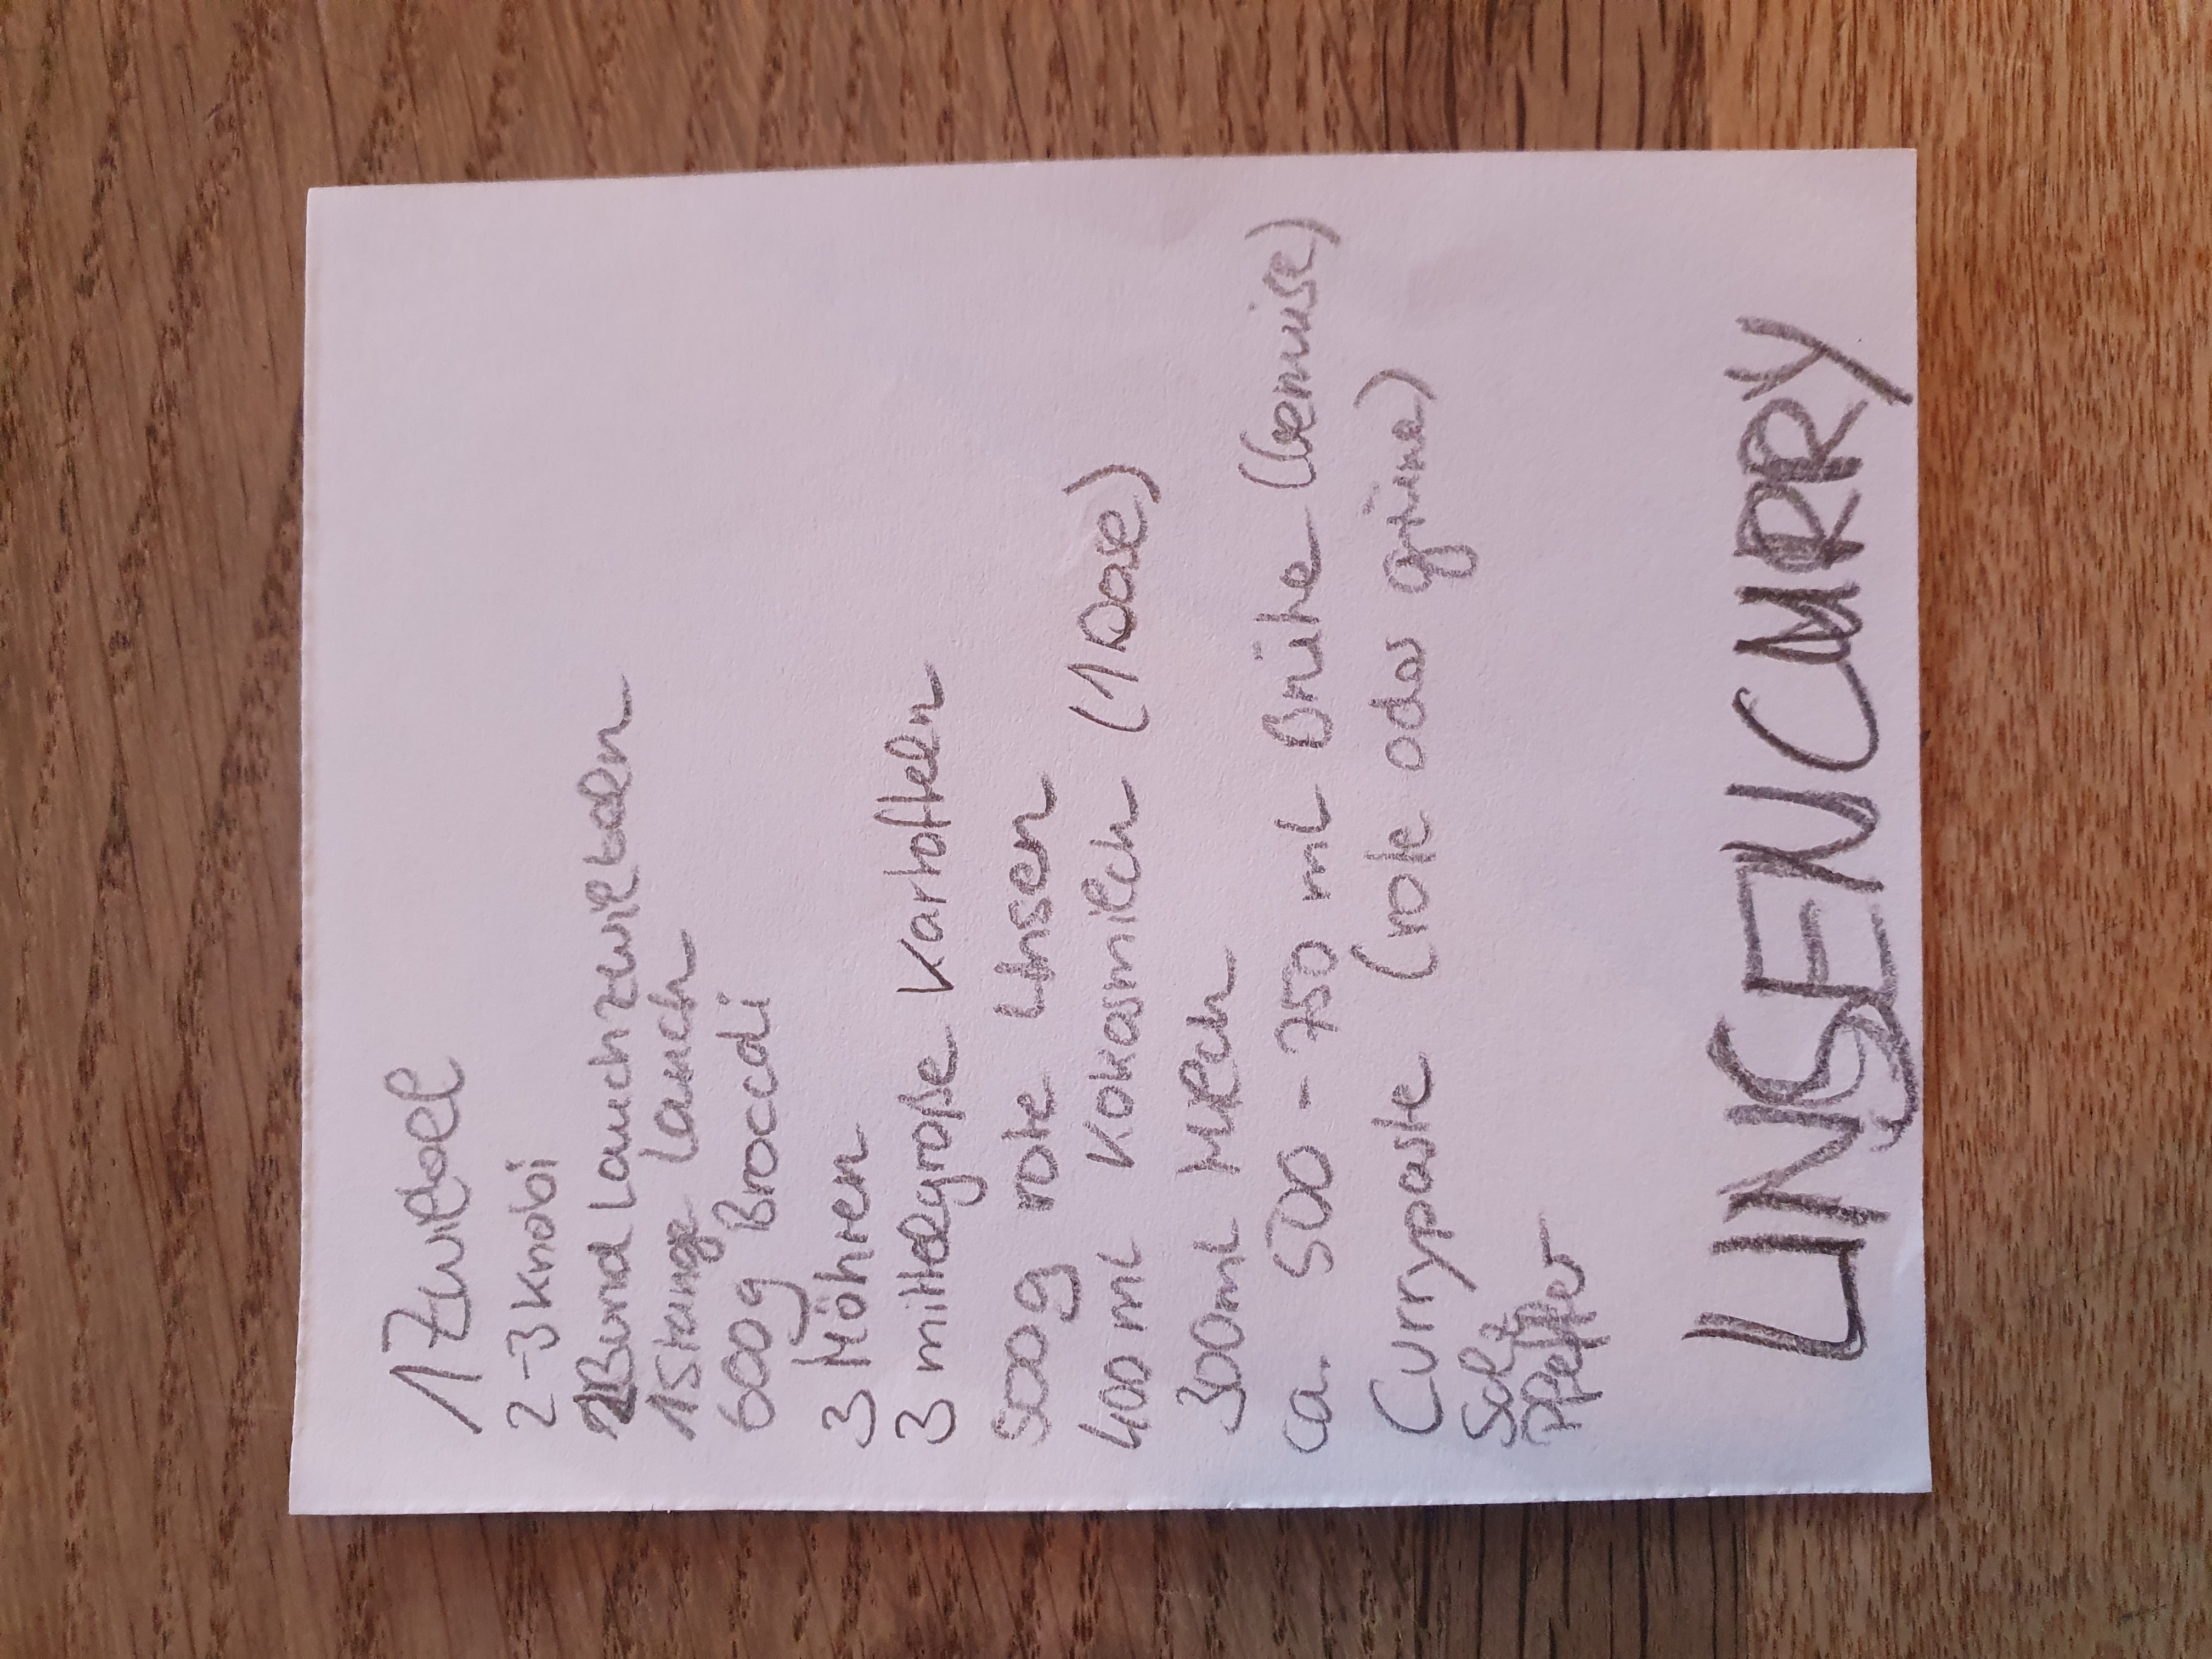 1 Zwiebel
2-3 Knobi
Bund Lauchzwiebeln
1 Stange Lauch
600g Broccoli
3 Möhren
3 mittelgroße Kartoffeln
500g rote Linsen
400 ml Kokosmilch (1 Dose)
300 ml Milch
ca. 500-750 ml Brühe (Gemüse)
Currypaste (rote oder grüne)
Salz
Pfeffer
LINSENCURRY